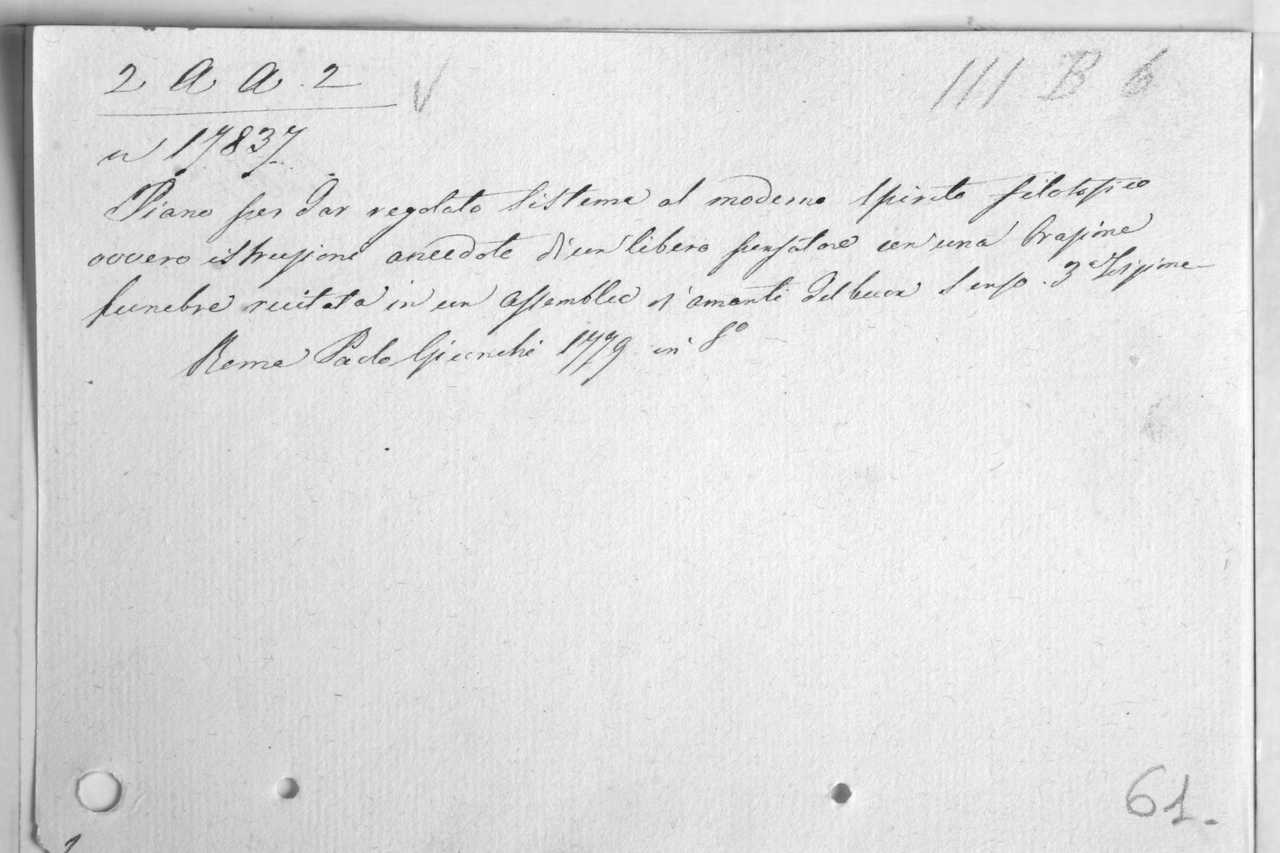 2 A A. 2 √ III B 6
n 17837
Piano per dar regolato sistema al moderno spirito filosofico
ovvero istruzioni anecdote di un libero pensatore con una Orazione
funebre recitata in un assemblea d'amanti del buon senso. 3ª Edizione
Roma Paolo Giunchi 1779 in 8º
61.